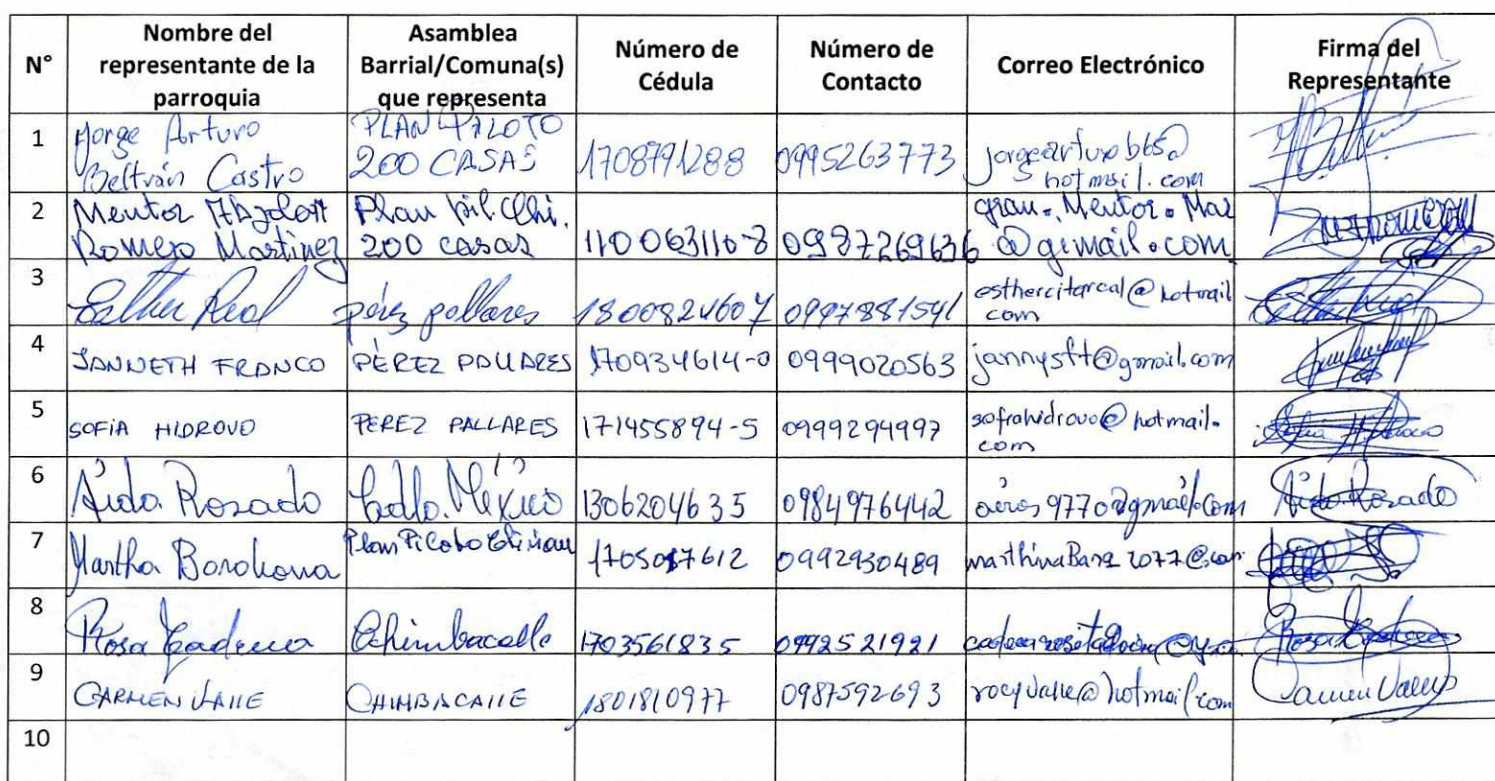 N°
Nombre del representante de la parroquia
Asamblea Barrial/Comuna(s) que representa
Número de Cédula
Número de Contacto
Correo Electrónico
Firma del Representante
1
Jorge Arturo Beltrán Castro
PLAN PILOTO 200 CASAS
1708791288
0995263773
jorgearturob65@hotmail.com
2
Mentor Romero Martinez
Plan 200 casas
110063110-8
0987269636
grau.Mentor.Mar@gimail.com
3
Esther Real
pérez pallares
0997881541
esthercitareal@hotmail com
4
JANNETH FRANCO
PÉREZ PALLARES
170934614-0
0999020563
jannysft@gmail.com
5
SOFÍA HIDROVO
PEREZ PALLARES
171455894-5
0999294997
sofiahidrovo@hotmail.com
6
Aida Rosado
Cdla. México
1306204635
0984976442
Aida Rosado
7
Martha
1705017612
0992930489
8
Rosa Cadena
Chimbacalle
1703561835
0992521921
9
CARMEN VALLE
CHIMBACALLE
1801810977
0987592693
rocyvalle@hotmail.com
Carmen Valle
10